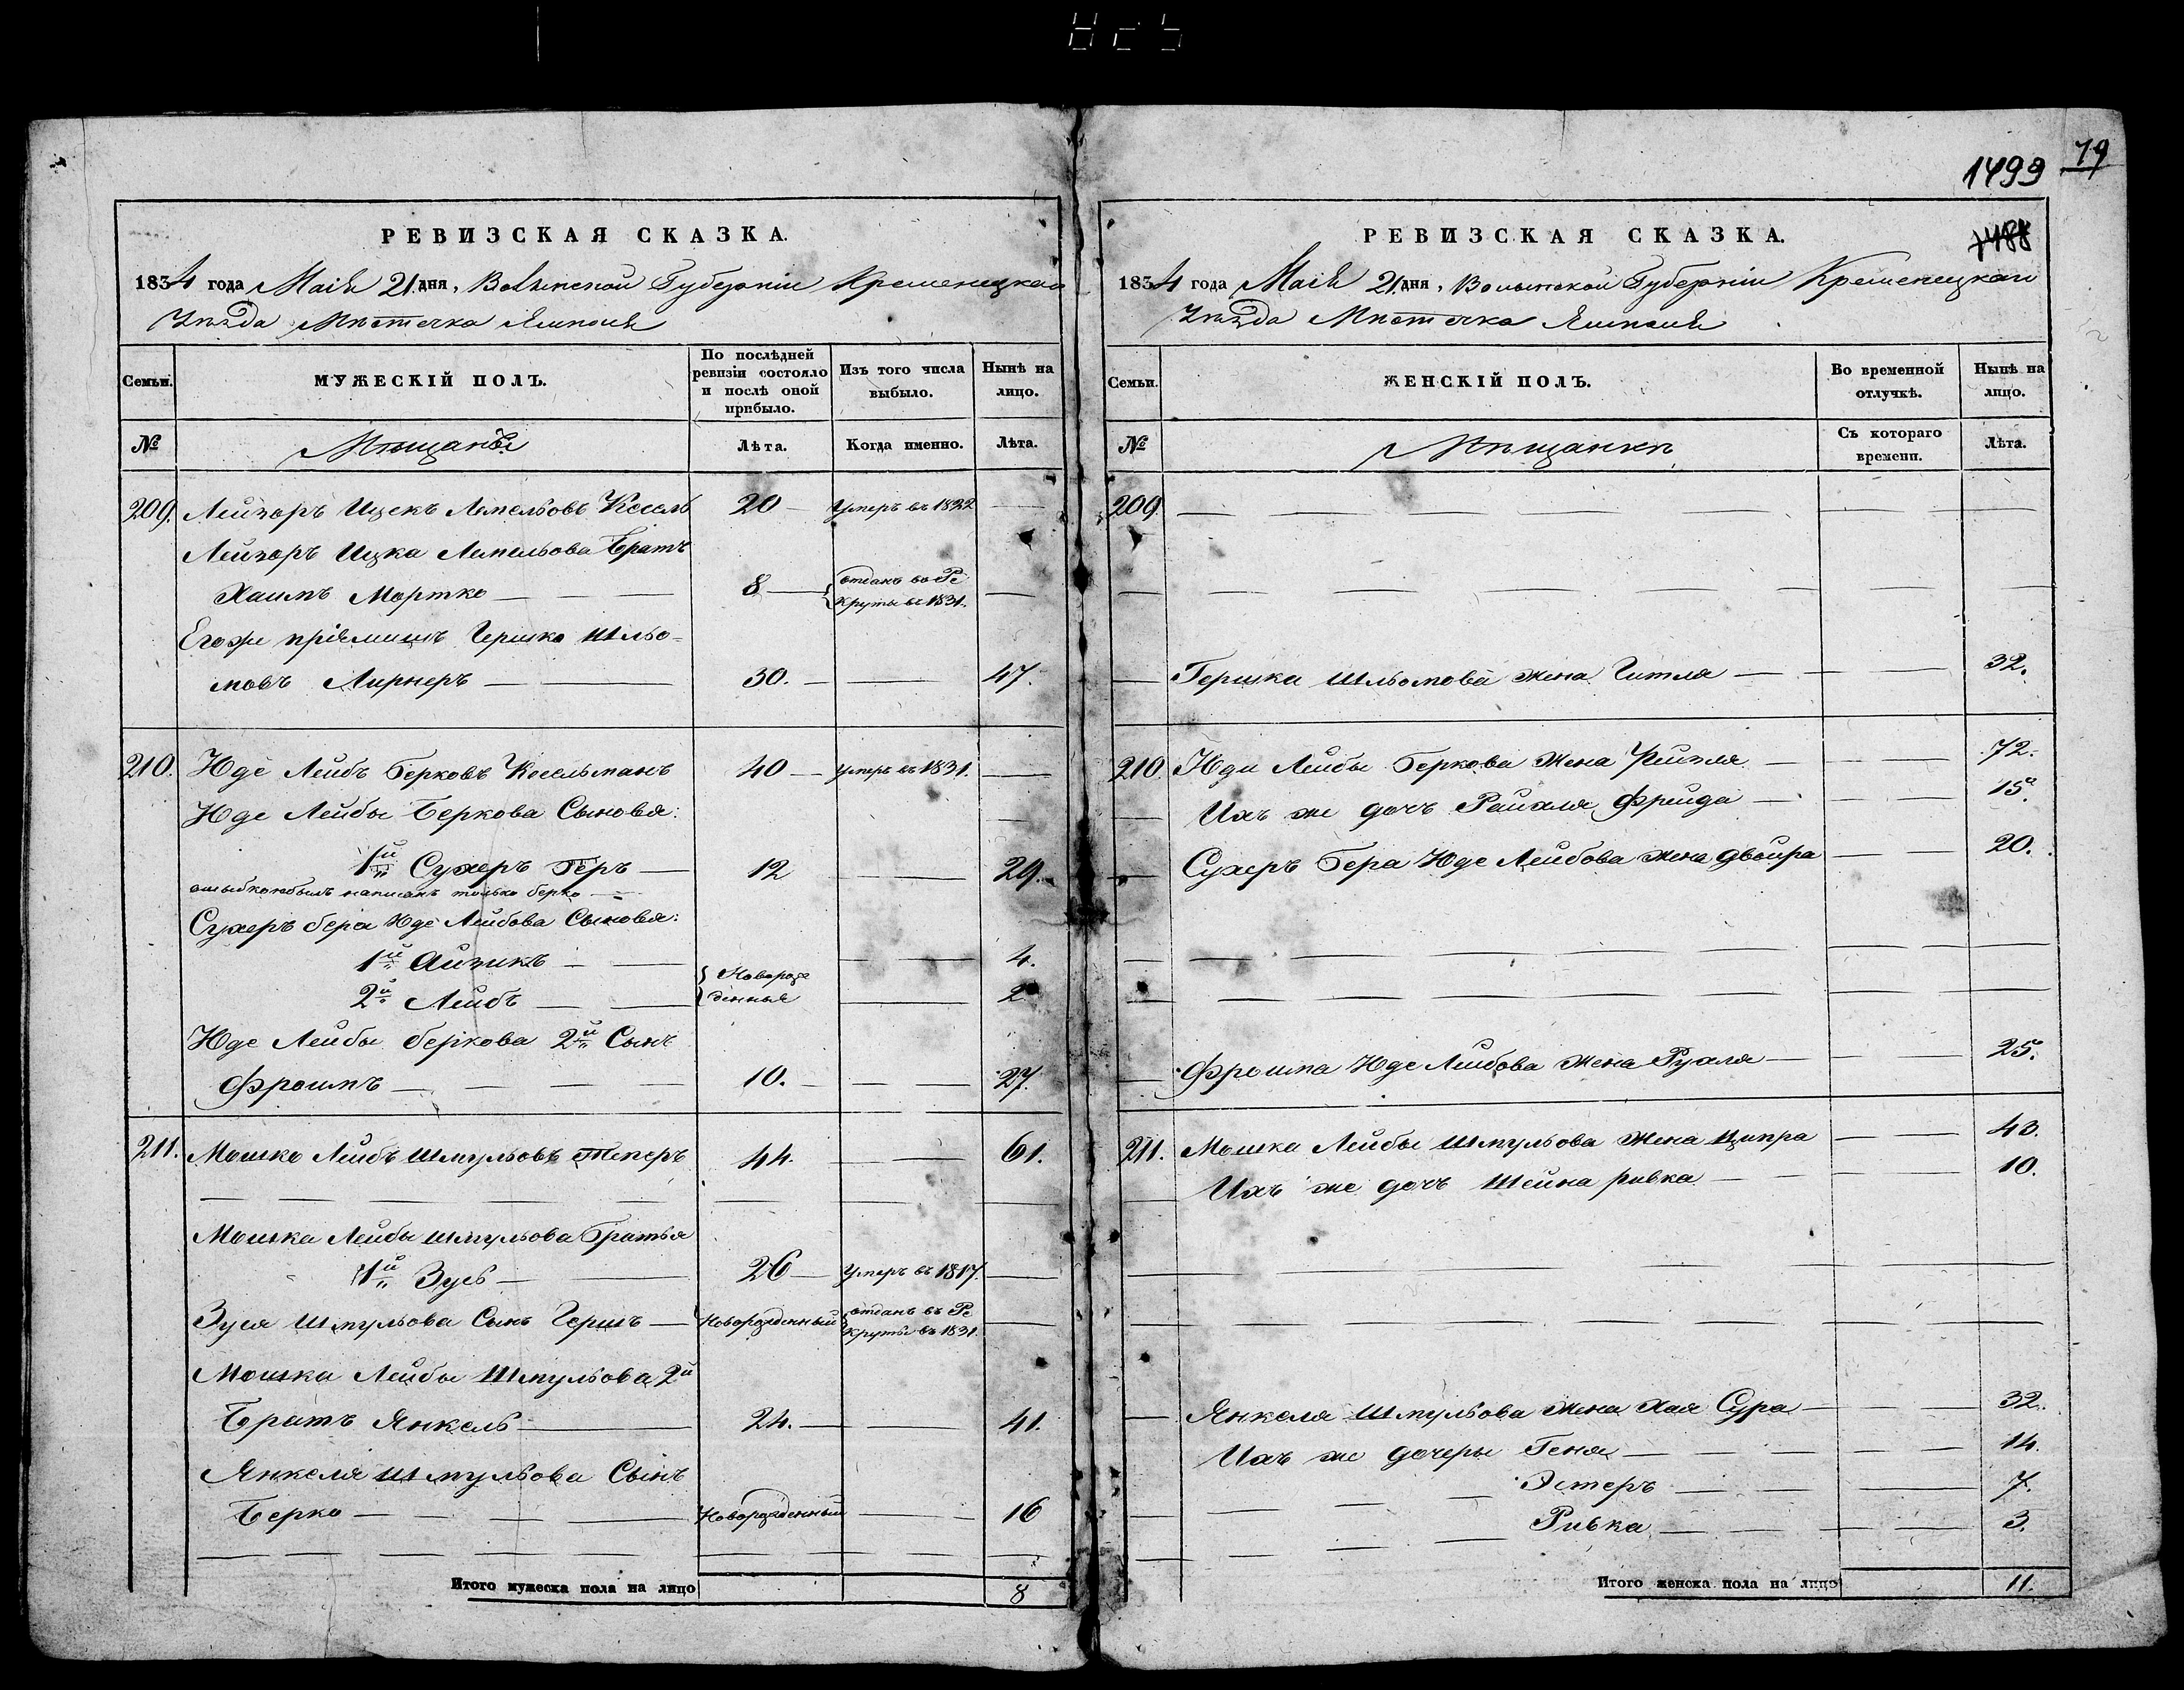 1499 79
РЕВИЗСКАЯ СКАЗКА.
1834 года Маія 21 дня, Волынской Губерніи Кременецкаго
Уѣзда Мѣстечка Ямполя
Семьи.
МУЖЕСКІЙ ПОЛЪ.
По послѣдней ревизіи состояло и послѣ оной прибыло.
Изъ того числа выбыло.
Нынѣ на лицо.
№
Мѣщанѣ
Лѣта.
Когда именно.
Лѣта.
209. Лейзоръ Ицекъ Лемельовъ Кесель 20 Умеръ въ 1822
Лейзоръ Ицка Лемельова Братъ
Хаимъ Мортко 8 отданъ во Ре
круты въ 1831.
Егоже пріемышъ Гершко Шльо-
мовъ Лирнеръ 30. 47.
210. Юде Лейбъ Берковъ Косельманъ 40 Умеръ въ 1831.
Юде Лейбы Беркова Сыновья:
1й Сухеръ Беръ 12 29.
ошыбконбылъ написанъ только берко
Сухеръ бера Юде Лейбова Сыновья:
1й Айзикъ 4.
Новорож
денные
2й Лейбъ 2
Юде Лейбы беркова 2й Сынъ
Фроимъ 10. 27.
211. Мошко Лейбъ Шмульовъ 44. 61.
Мошка Лейбы Шмульова Братья
1й Зусь 26 Умеръ въ 1817.
Зуся Шмульова Сынъ Гершъ Новорожденный отданъ въ Ре
круты въ 1831.
Мошка Лейбы Шмульова 2й
Братъ Янкель 24. 41.
Янкеля Шмульова Сынъ
Берко Новорожденный 16
Итого мужеска пола на лицо 8
РЕВИЗСКАЯ СКАЗКА.
1488
1834 года Маія 21 дня, Волынской Губерніи Кременецкаго
Уѣзда Мѣстечка Ямполя
Семьи.
ЖЕНСКІЙ ПОЛЪ.
Во временной отлучкѣ.
Нынѣ на лицо.
№
Мѣщанки
Съ котораго времени.
Лѣта.
209
Гершка Шльомова жена Гитля 32.
210. Юди Лейбы Беркова жена Рейзля 72.
Ихъ же дочъ Райхля Фрейда 15.
Сухеръ Бера Юде Лейбова жена Двойра 20.
Фроима Юде Лейбова жена Рухля 25.
211. Мошка Лейбы Шмульова жена Ципра 43.
Ихъ же дочъ Шейна ривка 10.
Янкеля Шмульова жена Хая Сура 32.
Ихъ же дочеры Геня 14.
Эстеръ 7.
Ривка 3.
Итого женска пола на лицо 11.